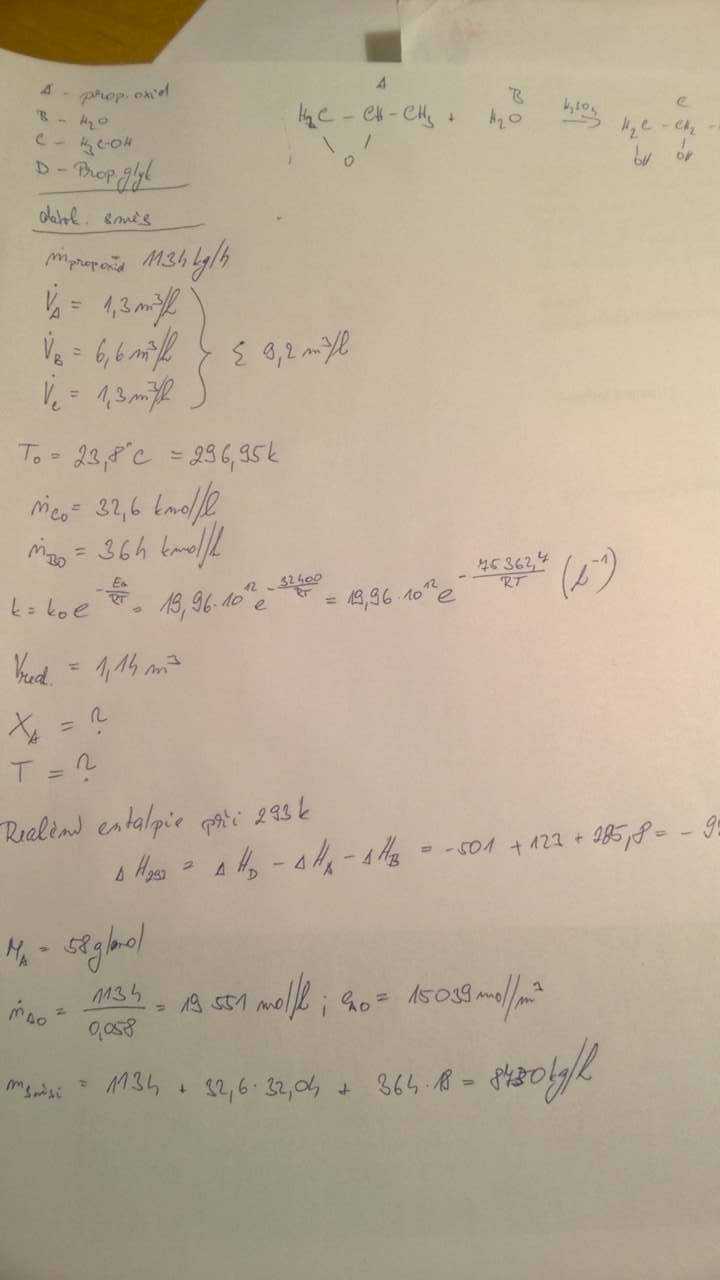 A - prop.oxid
B - H2O
C - H3C-OH
D - Prop.glyk
A B C
H2C - CH - CH3 + H2O H2SO4 → H2C - CH2 -
O OH OH
směs
ṁpropoxid 1134 kg/h
V̇A = 1,3 m³/h
V̇B = 6,6 m³/h } Σ 9,2 m³/h
V̇C = 1,3 m³/h
T0 = 23,8°C = 296,95 K
ṅC0 = 32,6 kmol/h
ṅB0 = 364 kmol/h
k = k0 e^(-Ea/RT) = 19,96·10^12 e^(-32400/RT) = 19,96·10^12 e^(-75362,4/RT) (h^-1)
Vreak. = 1,14 m³
XA = ?
T = ?
Reakční entalpie při 293 K
ΔH293 = ΔHD - ΔHA - ΔHB = -501 + 123 + 285,8 = - 9
MA = 58 g/mol
ṅA0 = 1134/0,058 = 19 551 mol/h ; cA0 = 15039 mol/m³
msměsi = 1134 + 32,6·32,04 + 364·18 = 8730 kg/h